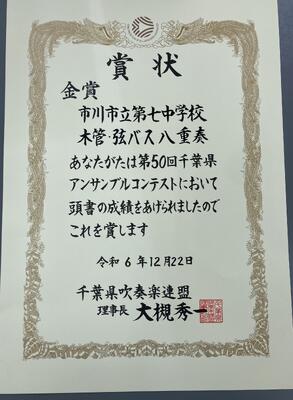 賞状
金賞
市川市立第七中学校
木管・弦バス八重奏
あなたがたは第50回千葉県
アンサンブルコンテストにおいて
頭書の成績をあげられましたので
これを賞します
令和6年12月22日
千葉県吹奏楽連盟
理事長 大槻秀一